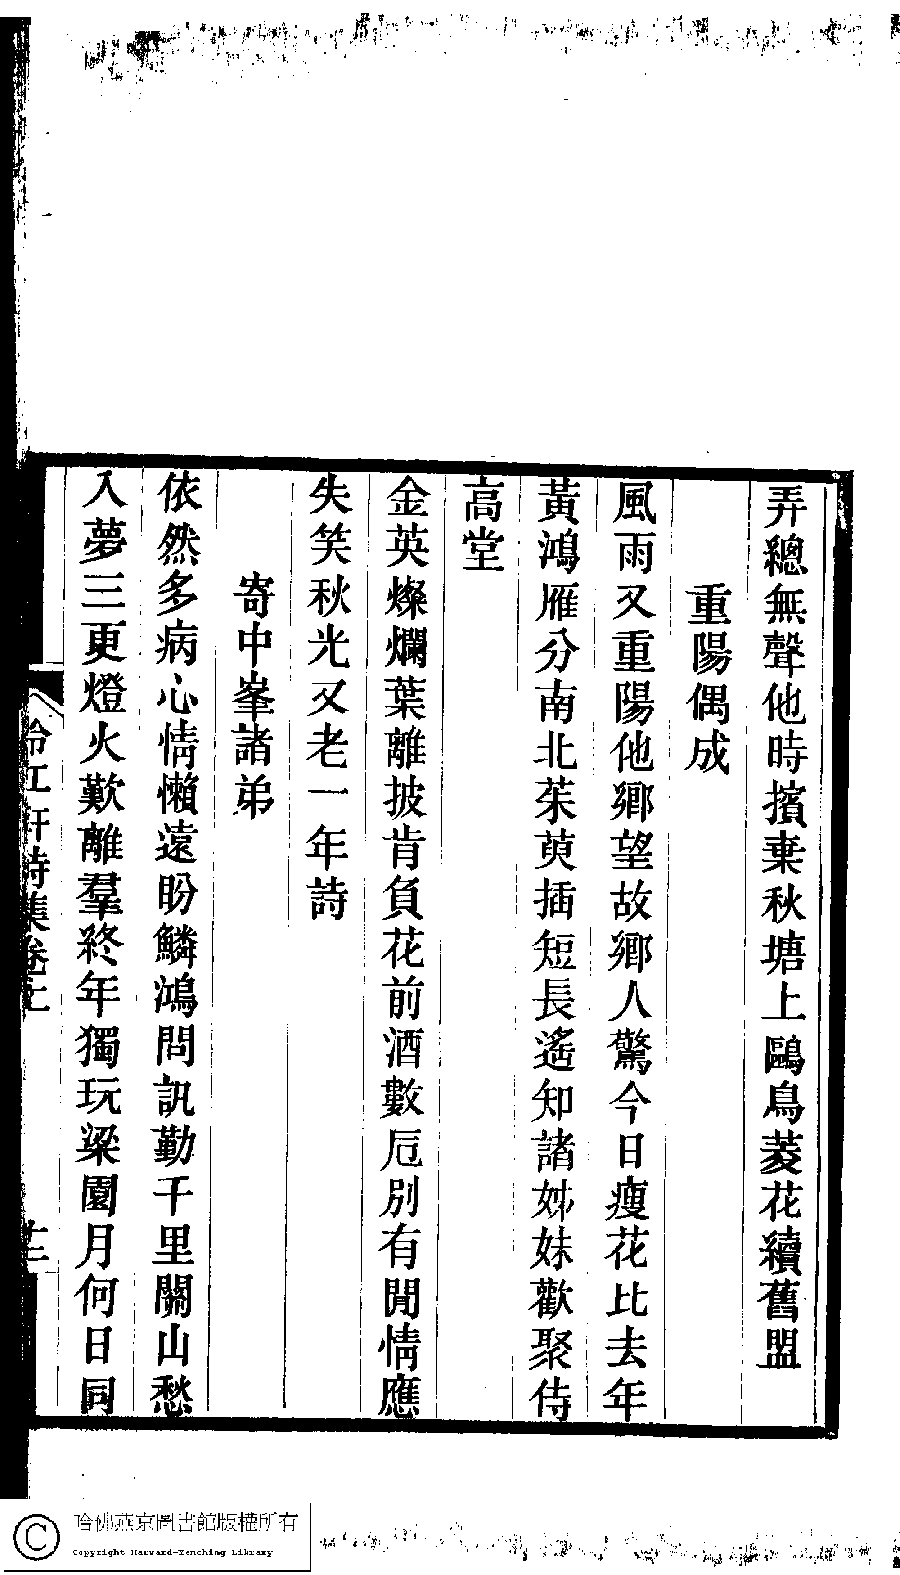 弄總無聲他時擯棄秋塘上鷗鳥菱花續舊盟
重陽偶成
風雨又重陽他鄉望故鄉人驚今日瘦花比去年
黃鴻雁分南北茱萸插短長遙知諸姊妹歡聚侍
高堂
金英燦爛葉離披肯負花前酒數卮別有閒情應
失笑秋光又老一年詩
寄中峯諸弟
依然多病心情懶遠盼鱗鴻問訊勤千里關山愁
入夢三更燈火歎離羣終年獨玩梁園月何日同
冷江軒詩集卷上
哈佛燕京圖書館版權所有
Copyright Harvard-Yenching Library